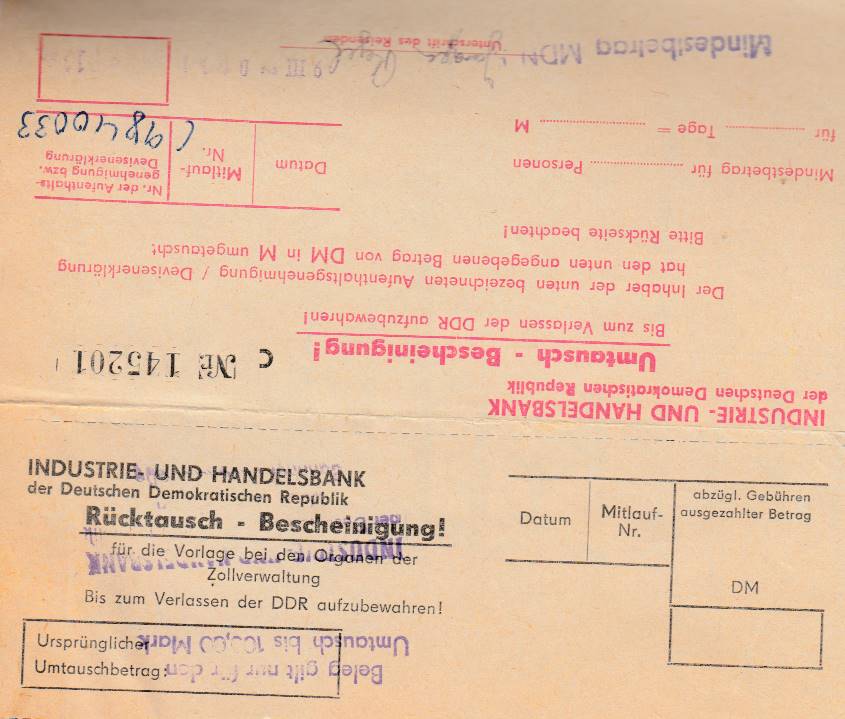 INDUSTRIE- UND HANDELSBANK
der Deutschen Demokratischen Republik
Umtausch - Bescheinigung!
C № 145201
Bis zum Verlassen der DDR aufzubewahren!
Der Inhaber der unten bezeichneten Aufenthaltsgenehmigung / Devisenerklärung
hat den unten angegebenen Betrag von DM in M umgetauscht
Bitte Rückseite beachten!
Mindestbetrag für ........ Personen
für ........ Tage = ........ M
Nr. der Aufenthalts-
genehmigung bzw.
Devisenerklärung
Mitlauf-
Nr.
Datum
9840033
Unterschrift des Reisenden
Mindestbetrag MDN
INDUSTRIE- UND HANDELSBANK
der Deutschen Demokratischen Republik
Rücktausch - Bescheinigung!
für die Vorlage bei den Organen der
Zollverwaltung
Bis zum Verlassen der DDR aufzubewahren!
Ursprünglicher
Umtauschbetrag:
Datum
Mitlauf-
Nr.
abzügl. Gebühren
ausgezahlter Betrag
DM
Beleg gilt nur für den
Umtausch bis 100,00 Mark
INDUSTRIE- UND HANDELSBANK